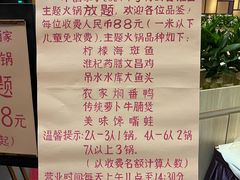 主题火锅放题，欢迎各位品鉴，
每位收费人民币88元（一米以下
儿童免收费）。主题火锅品种如下：
柠檬海斑鱼
淮杞药膳文昌鸡
吊水水库大鱼头
农家焖番鸭
传统萝卜牛腩袋
美味馋嘴蛙
温馨提示：2人-3人1锅，4人-6人2锅
7人以上3锅。
（以收费名额计算人数）
营业时间每天上午11点至14:30分